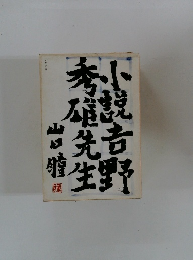 小説吉野
秀雄先生
山口瞳